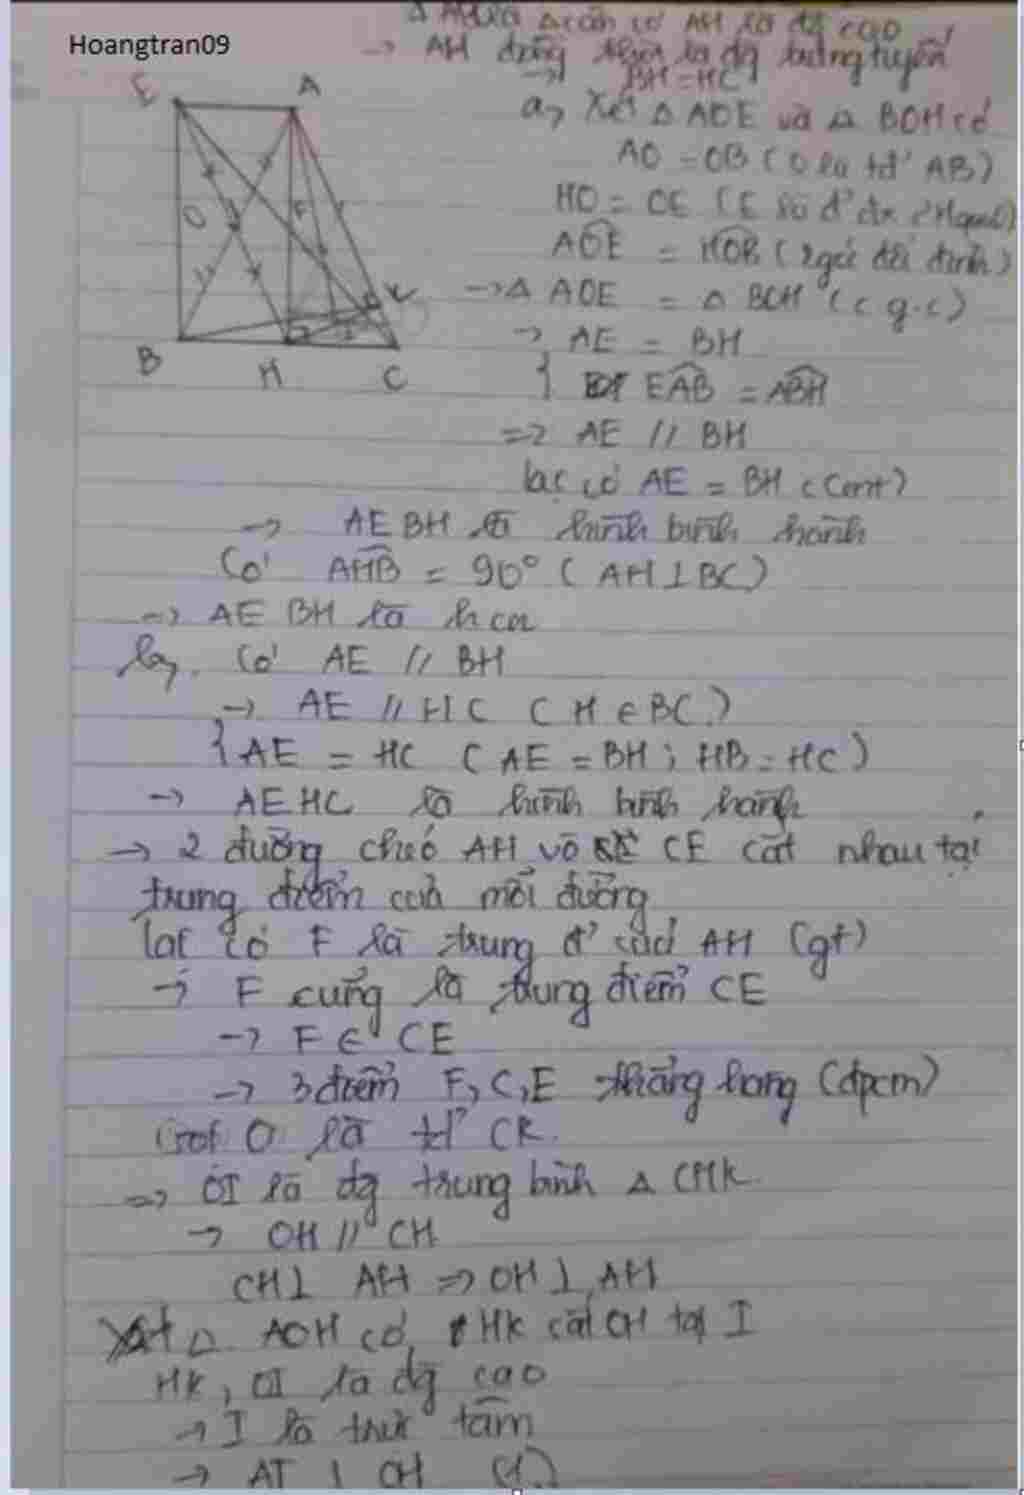 Hoangtran09
Δ cân có AH là đg cao
→ AH đồng thời là đg trung tuyến
→ BH = HC
E A
O F K
B H C I
a, Xét Δ AOE và Δ BOH có
AO = OB (O là tđ' AB)
HO = OE (E là đ' đx H qua O)
AOE = HOB (2 góc đối đỉnh)
→ Δ AOE = Δ BOH (c g.c)
→ AE = BH
{ EAB = ABH
=> AE // BH
lại có AE = BH (cmt)
→ AEBH là hình bình hành
Có AHB = 90° (AH ⊥ BC)
→ AEBH là hcn
b, Có AE // BH
→ AE // HC (H ∈ BC)
{ AE = HC (AE = BH ; HB = HC)
→ AEHC là hình bình hành
→ 2 đường chéo AH và CE cắt nhau tại
trung điểm của mỗi đường
lại có F là trung đ' của AH (gt)
→ F cũng là trung điểm CE
→ F ∈ CE
→ 3 điểm F, C, E thẳng hàng (đpcm)
Gọi O là tđ' CK
=> OI là đg trung bình Δ CHK
→ OH // CH
CH ⊥ AH => OH ⊥ AH
Xét Δ AOH có HK cắt OH tại I
HK, OI là đg cao
→ I là trực tâm
→ AI ⊥ OH (1)